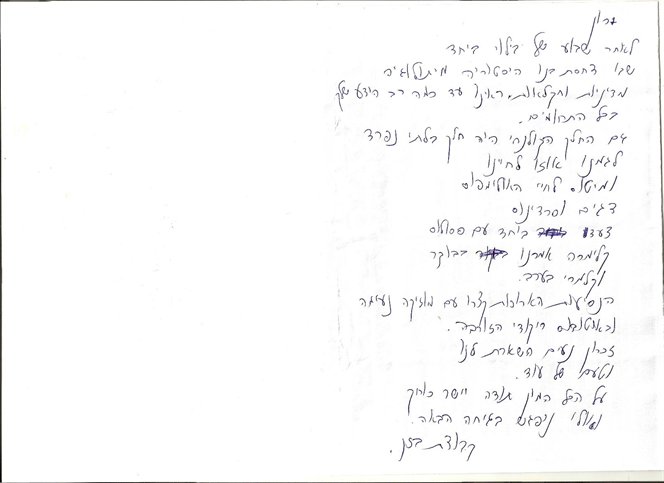 ארון
לאחר שבוע של בילוי ביחד
שבו דחסת בנו היסטוריה מיתולוגיה
מדיניות וחקלאות, ראינו עד כמה רב הידע שלך
בכל התחומים.
גם החלק הקולנרי היה חלק בלתי נפרד
לגמנו אוזו לחיינו
ומיטוס לחיי האולימפוס
דגים וסרדינוס
צעדנו ביחד עם פסולוס
קלימרה אמרנו בבוקר
וקלמרי בערב.
הנסיעות הארוכות קצרו עם מוזיקה נעימה
ובאוטובוס ריקודי הזורבה.
זכרון נעים השארת לנו
וטעם של עוד.
על הכל המון תודה יישר כוחך
ואולי ניפגש בגיחה הבאה.
קבוצת